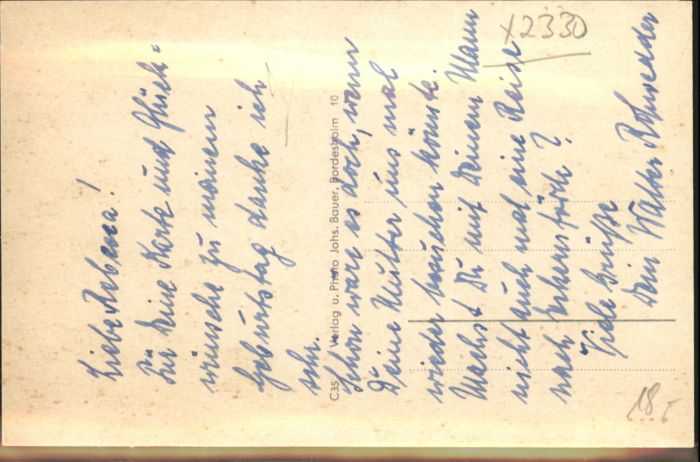 Liebe Rebena!
Für Deine Karte und Glück-
wünsche zu meinem
Geburtstag danke ich
sehr.
Schön wäre es doch, wenn
Deine Mutter uns mal
wieder besuchen könnte.
Machst Du mit Deinem Mann
nicht auch mal eine Reise
nach ?
Viele Grüße
Dein Walter Rohwedder
C35 Verlag u. Photo Johs. Bauer, Bordesholm 10
x2330
18,-